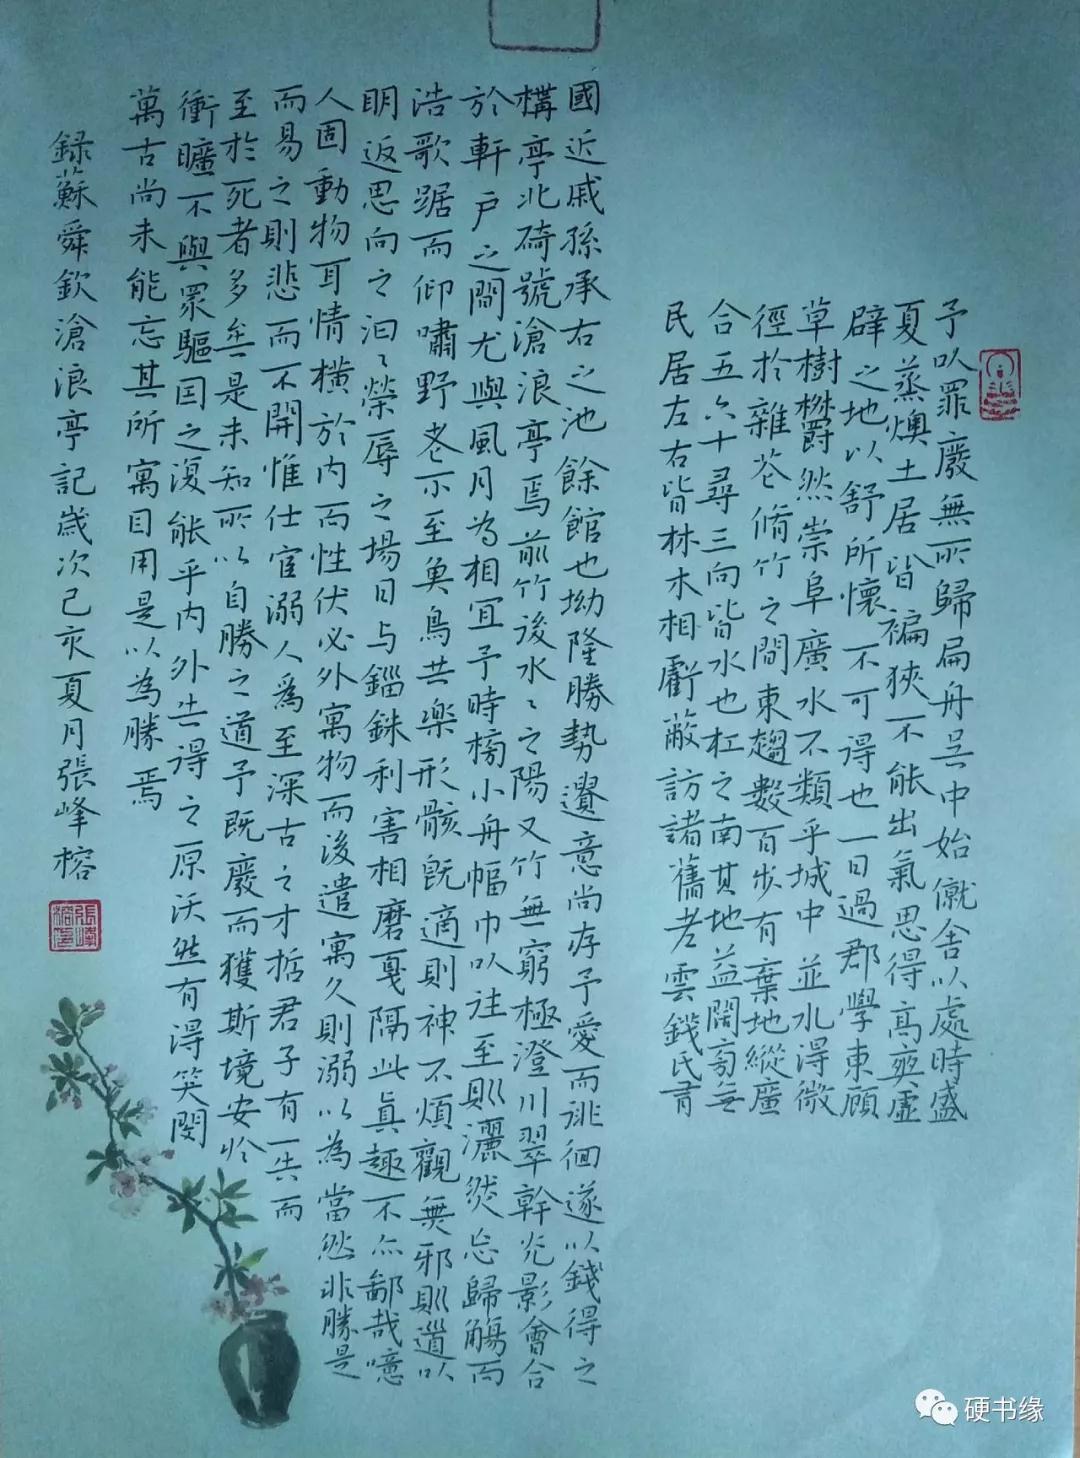 予以罪廢無所歸扁舟吳中始僦舍以處時盛
夏蒸燠土居皆褊狹不能出氣思得高爽虛
辟之地以舒所懷不可得也一日過郡學東顧
草樹欝然崇阜廣水不類乎城中並水得微
徑於雜花脩竹之間東趨數百步有棄地縱廣
合五六十尋三向皆水也杠之南其地益闊旁無
民居左右皆林木相虧蔽訪諸舊老雲錢氏有
國近戚孫承右之池餘館也坳隆勝勢遺意尚存予愛而徘徊遂以錢得之
構亭北碕號滄浪亭焉前竹後水々之陽又竹無窮極澄川翠幹光影會合
於軒戶之間尤與風月為相宜予時榜小舟幅巾以往至則灑然忘歸觴而
浩歌踞而仰嘯野老不至魚鳥共樂形骸既適則神不煩觀無邪則道以
明返思向之汩々榮辱之場日与錙銖利害相磨戛隔此真趣不亦鄙哉噫
人固動物耳情橫於內而性伏必外寓物而後遣寓久則溺以為當然非勝是
而易之則悲而不開惟仕宦溺人為至深古之才哲君子有一失而
至於死者多矣是未知所以自勝之道予既廢而獲斯境安於
衝曠不與眾驅因之復能乎內外失得之原沃然有得笑閔
萬古尚未能忘其所寓目用是以為勝焉
録蘇舜欽滄浪亭記歲次己亥夏月張峰榕
硬书缘